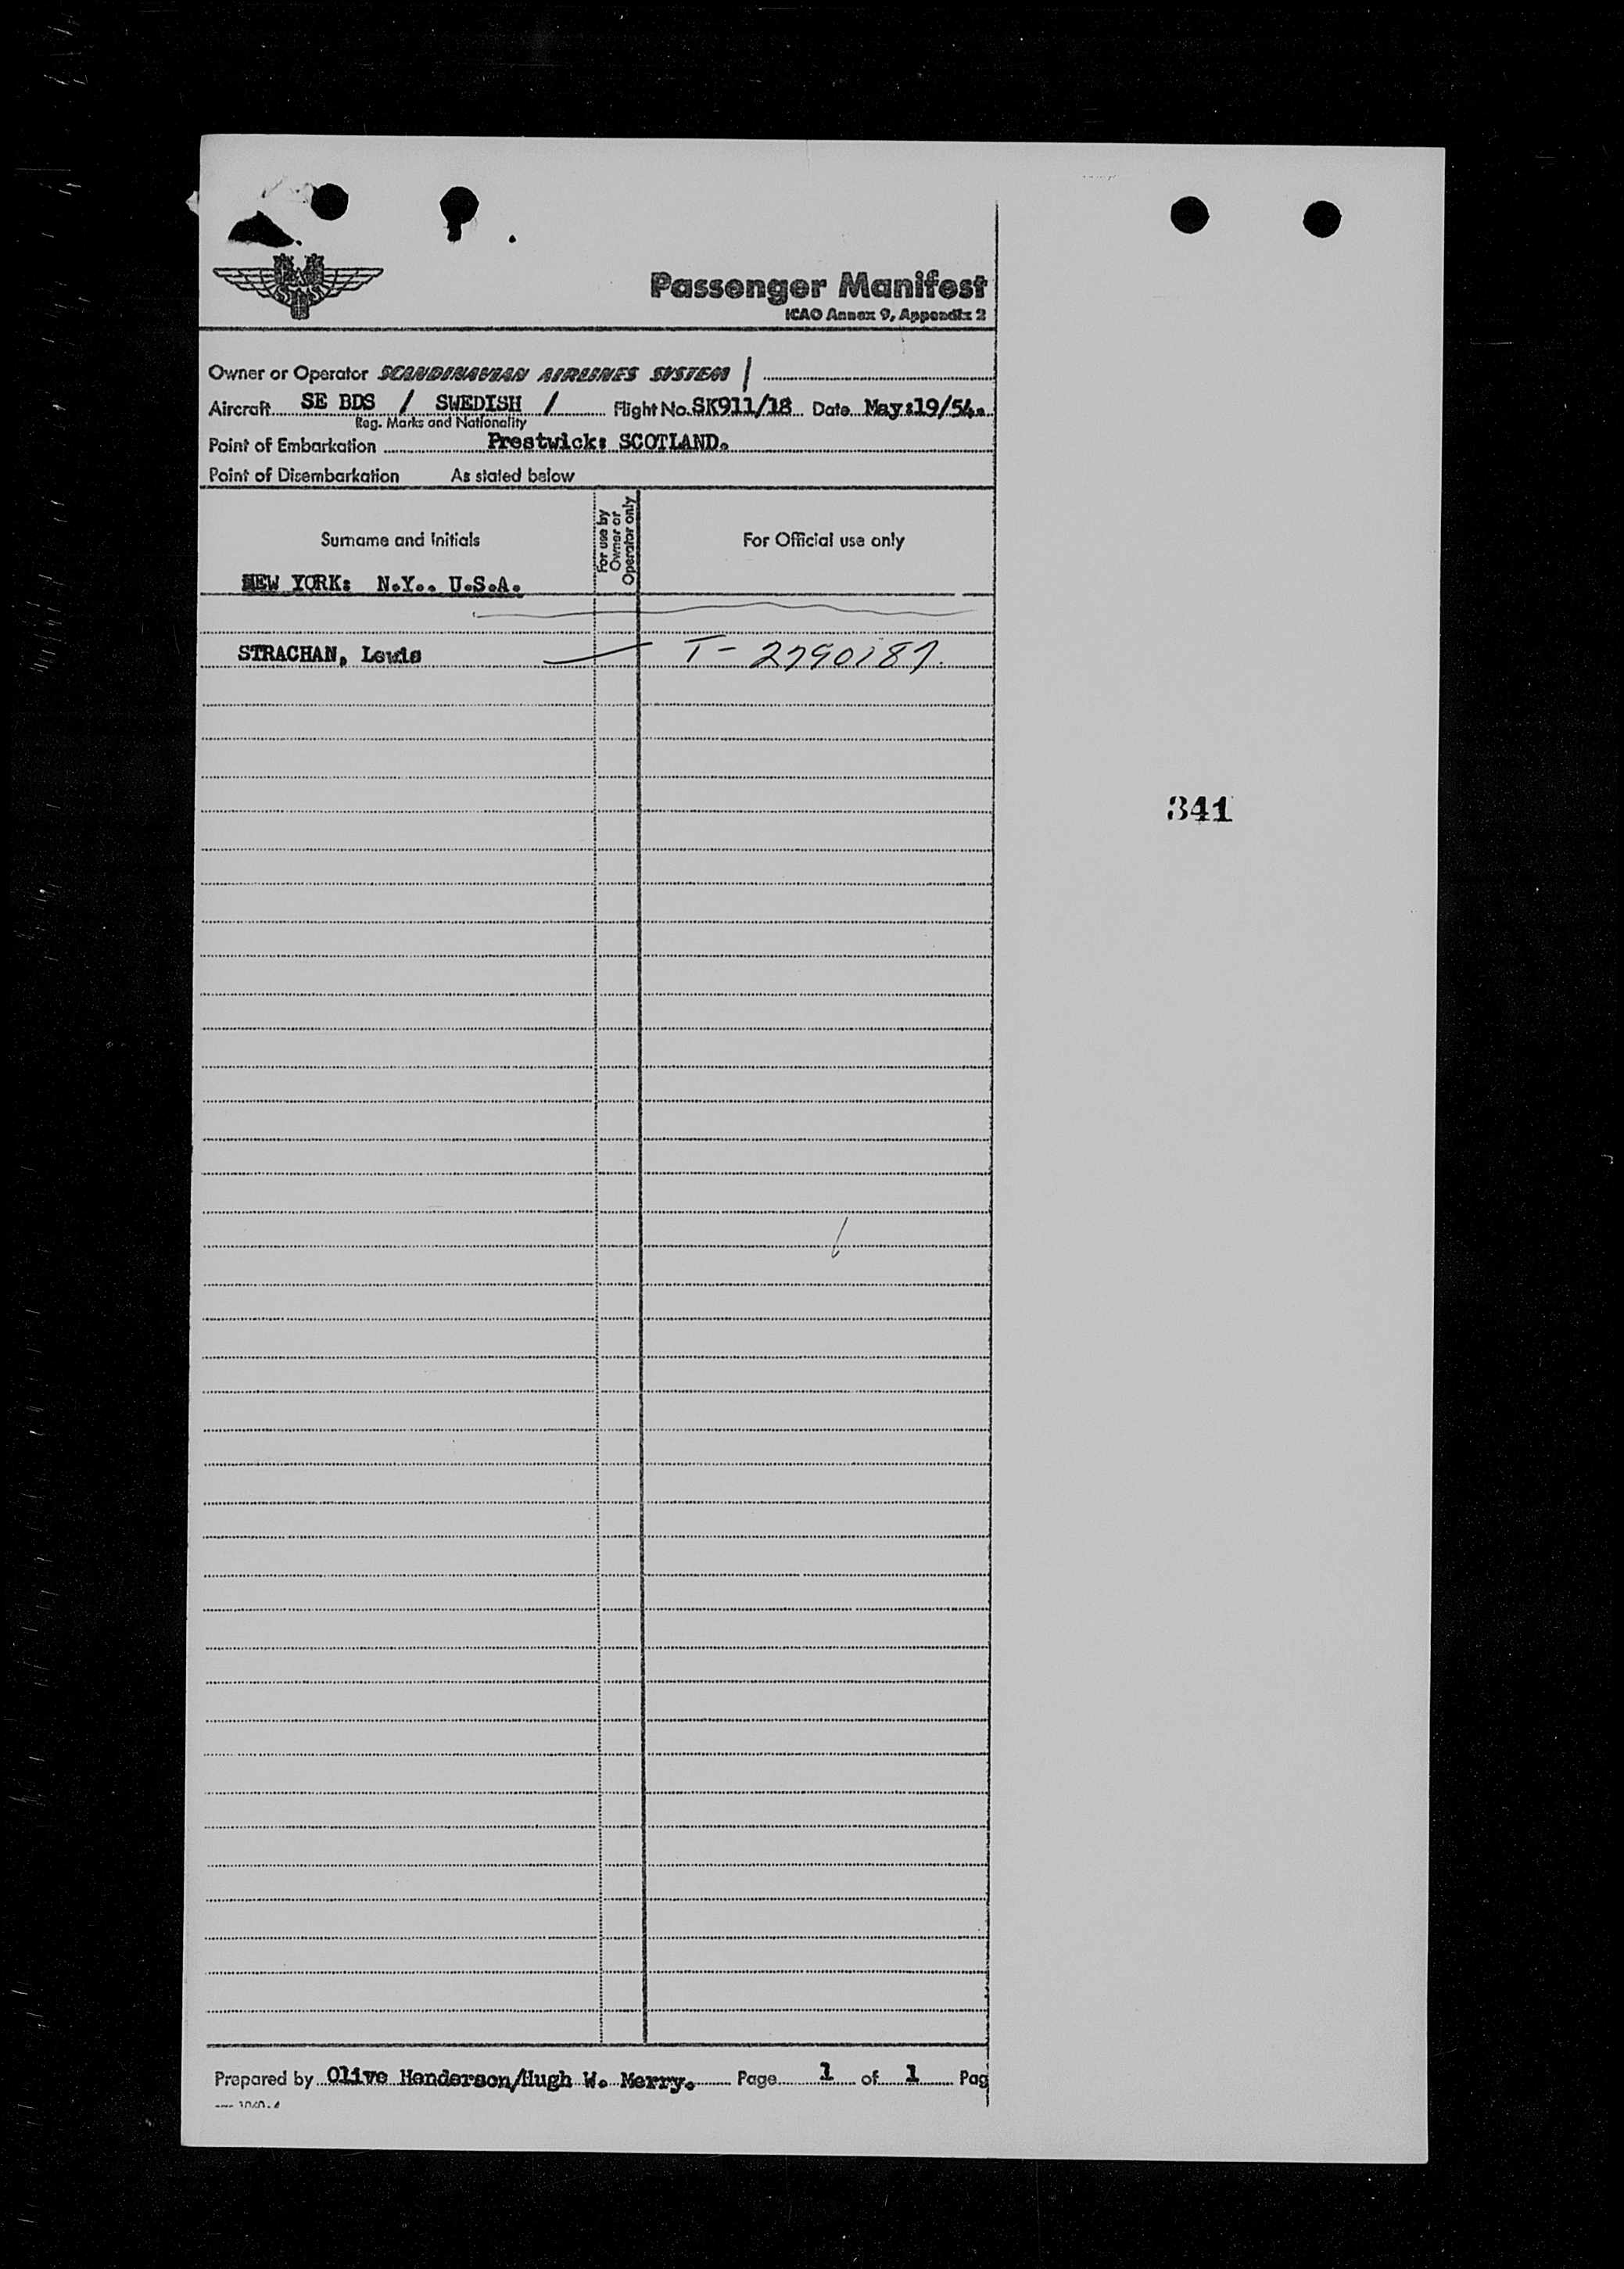 Passenger Manifest
ICAO Annex 9, Appendix 2
Owner or Operator SCANDINAVIAN AIRLINES SYSTEM /
Aircraft SE BDS / SWEDISH / Flight No. SK911/18 Date May:19/54.
Reg. Marks and Nationality
Point of Embarkation Prestwick: SCOTLAND.
Point of Disembarkation As stated below
Surname and Initials
For use by
Owner or
Operator only
For Official use only
NEW YORK: N.Y.. U.S.A.
STRACHAN, Lewis T-2790187.
341
Prepared by Olive Henderson/Hugh W. Merry. Page 1 of 1 Pag